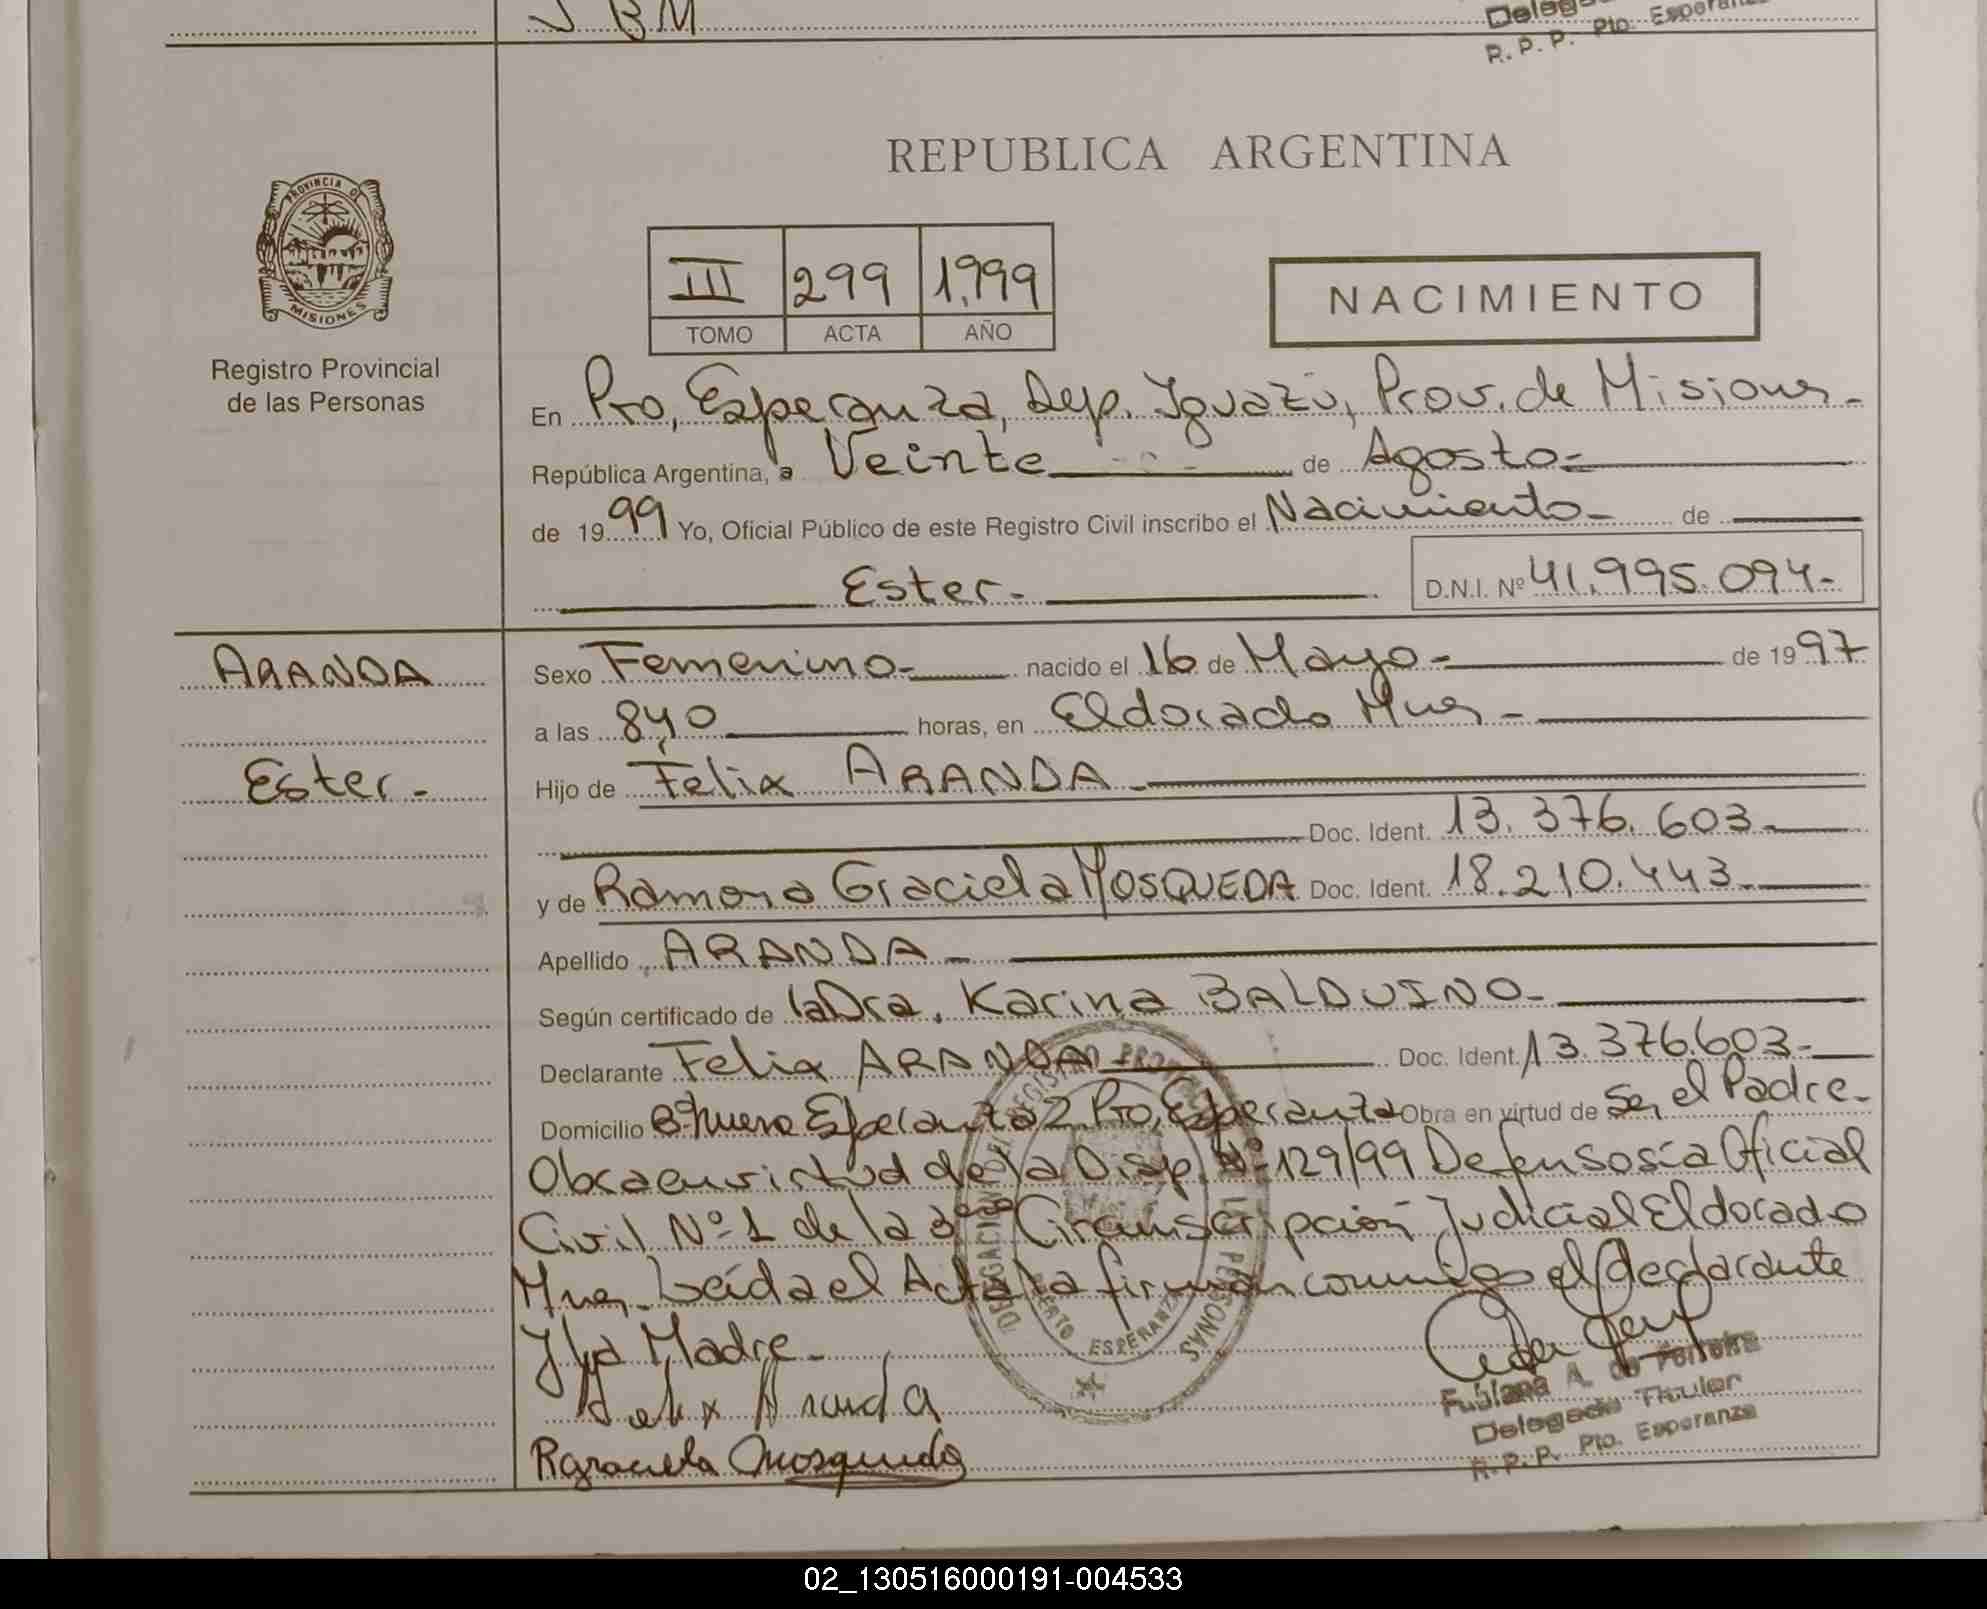 J B M
Delega
R. P. P. Pto. Esperanza
PROVINCIA DE
MISIONES
Registro Provincial
de las Personas
REPUBLICA ARGENTINA
III 299 1.999
TOMO ACTA AÑO
NACIMIENTO
En Pto, Esperanza, Dep. Iguazú, Prov. de Misiones.-
República Argentina, a Veinte de Agosto.-
de 1999 Yo, Oficial Público de este Registro Civil inscribo el Nacimiento- de
Ester.-
D.N.I. Nº 41.995.094.-
ARANDA
Ester.-
Sexo Femenino.- nacido el 16 de Mayo.- de 1997
a las 8,40 horas, en Eldorado Mnes.-
Hijo de Felix ARANDA.-
Doc. Ident. 13.376.603.-
y de Ramona Graciela MOSQUEDA Doc. Ident. 18.210.443.-
Apellido ARANDA.-
Según certificado de la Dra. Karina BALDUINO.-
Declarante Felix ARANDA.- Doc. Ident. 13.376.603.-
Domicilio Bº Nueva Esperanza 2 Pto, Esperanza Obra en virtud de Ser el Padre.-
Obra en virtud de la Disp. Nº 129/99 Defensoría Oficial
Civil Nº 1 de la 3era Circunscripción Judicial Eldorado
Mnes.- Leída el Acta la firman conmigo el declarante
y la Madre.-
Felix Aranda
RGraciela Mosqueda
DELEGACION DEL REGISTRO PROVINCIAL DE LAS PERSONAS
PUERTO ESPERANZA
Fabiana A. de Ferreira
Delegada Titular
R. P. P. Pto. Esperanza
02_130516000191-004533